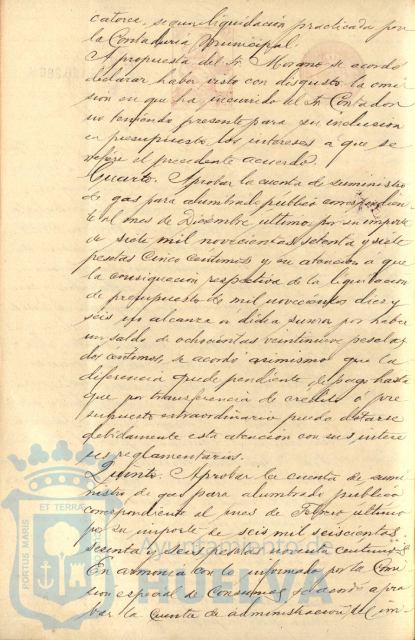 catorce, segun liquidación practicada por
la Contaduría Municipal.
A propuesta del Sr. Moreno se acordó
declarar haber visto con disgusto la omi
sion en que ha incurrido el Sr. Contador
no teniendo presente para su inclusion
en presupuesto los intereses a que se
refiere el precedente acuerdo.
Cuarto. Aprobar la cuenta de suministro
de gas para alumbrado público correspondien
te al mes de Diciembre ultimo por su importe
de siete mil novecientas setenta y siete
pesetas cinco centimos y en atencion a que
la consignacion respectiva de la liquidacion
de presupuesto de mil novecientos diez y
seis no alcanza a dicha suma por haber
un saldo de ochocientas veintinueve pesetas
dos céntimos, se acordó asimismo que la
diferencia quede pendiente de pago hasta
que por transferencia de credito ó pre
supuesto extraordinario pueda dotarse
debidamente esta atencion con sus intere
ses reglamentarios.
Quinto. Aprobar la cuenta de sumi
nistro de gas para alumbrado público
correspondiente al mes de Febrero ultimo
por su importe de seis mil seiscientas
sesenta y seis pesetas centimos
En armonía con lo informado por la Comi
sion especial de Consumos se acordó apro
bar la cuenta de administracion del im
PORTUS MARIS ET TERRAE
Ayuntamiento de
HUELVA